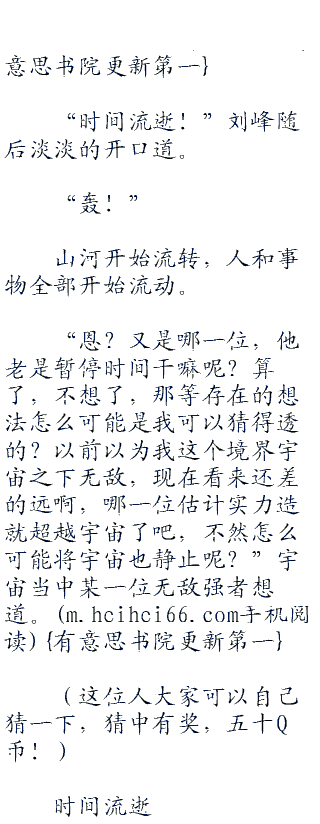 意思书院更新第一}
“时间流逝！”刘峰随
后淡淡的开口道。
“轰！”
山河开始流转，人和事
物全部开始流动。
“恩？又是哪一位，他
老是暂停时间干嘛呢？算
了，不想了，那等存在的想
法怎么可能是我可以猜得透
的？以前以为我这个境界宇
宙之下无敌，现在看来还差
的远啊，哪一位估计实力造
就超越宇宙了吧，不然怎么
可能将宇宙也静止呢？”宇
宙当中某一位无敌强者想
道。(m.hcihci66.com手机阅
读){有意思书院更新第一}
（这位人大家可以自己
猜一下，猜中有奖，五十Q
币！）
时间流逝